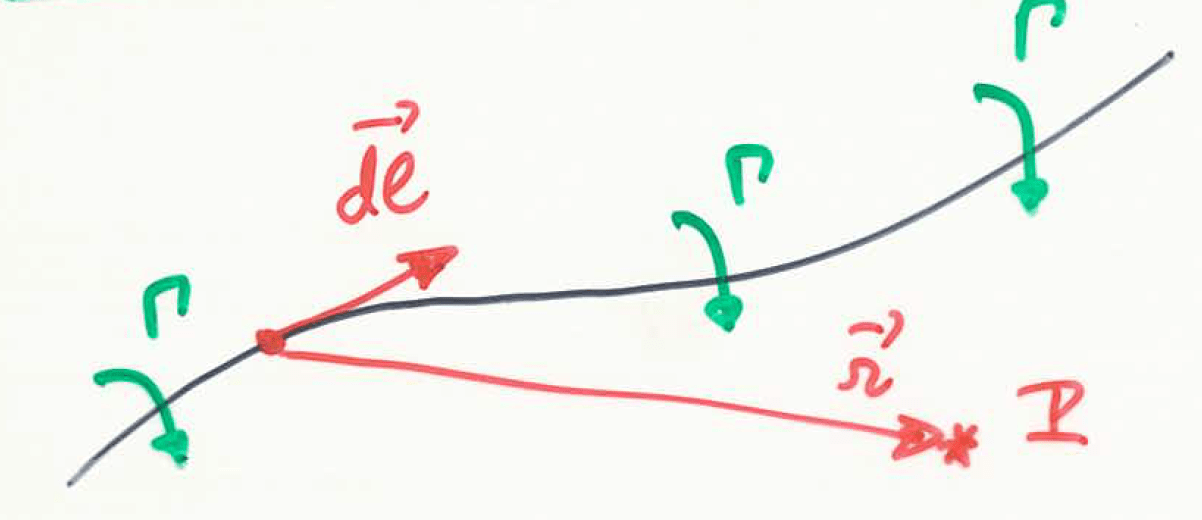 Γ
dℓ⃗
Γ
Γ
r⃗
P